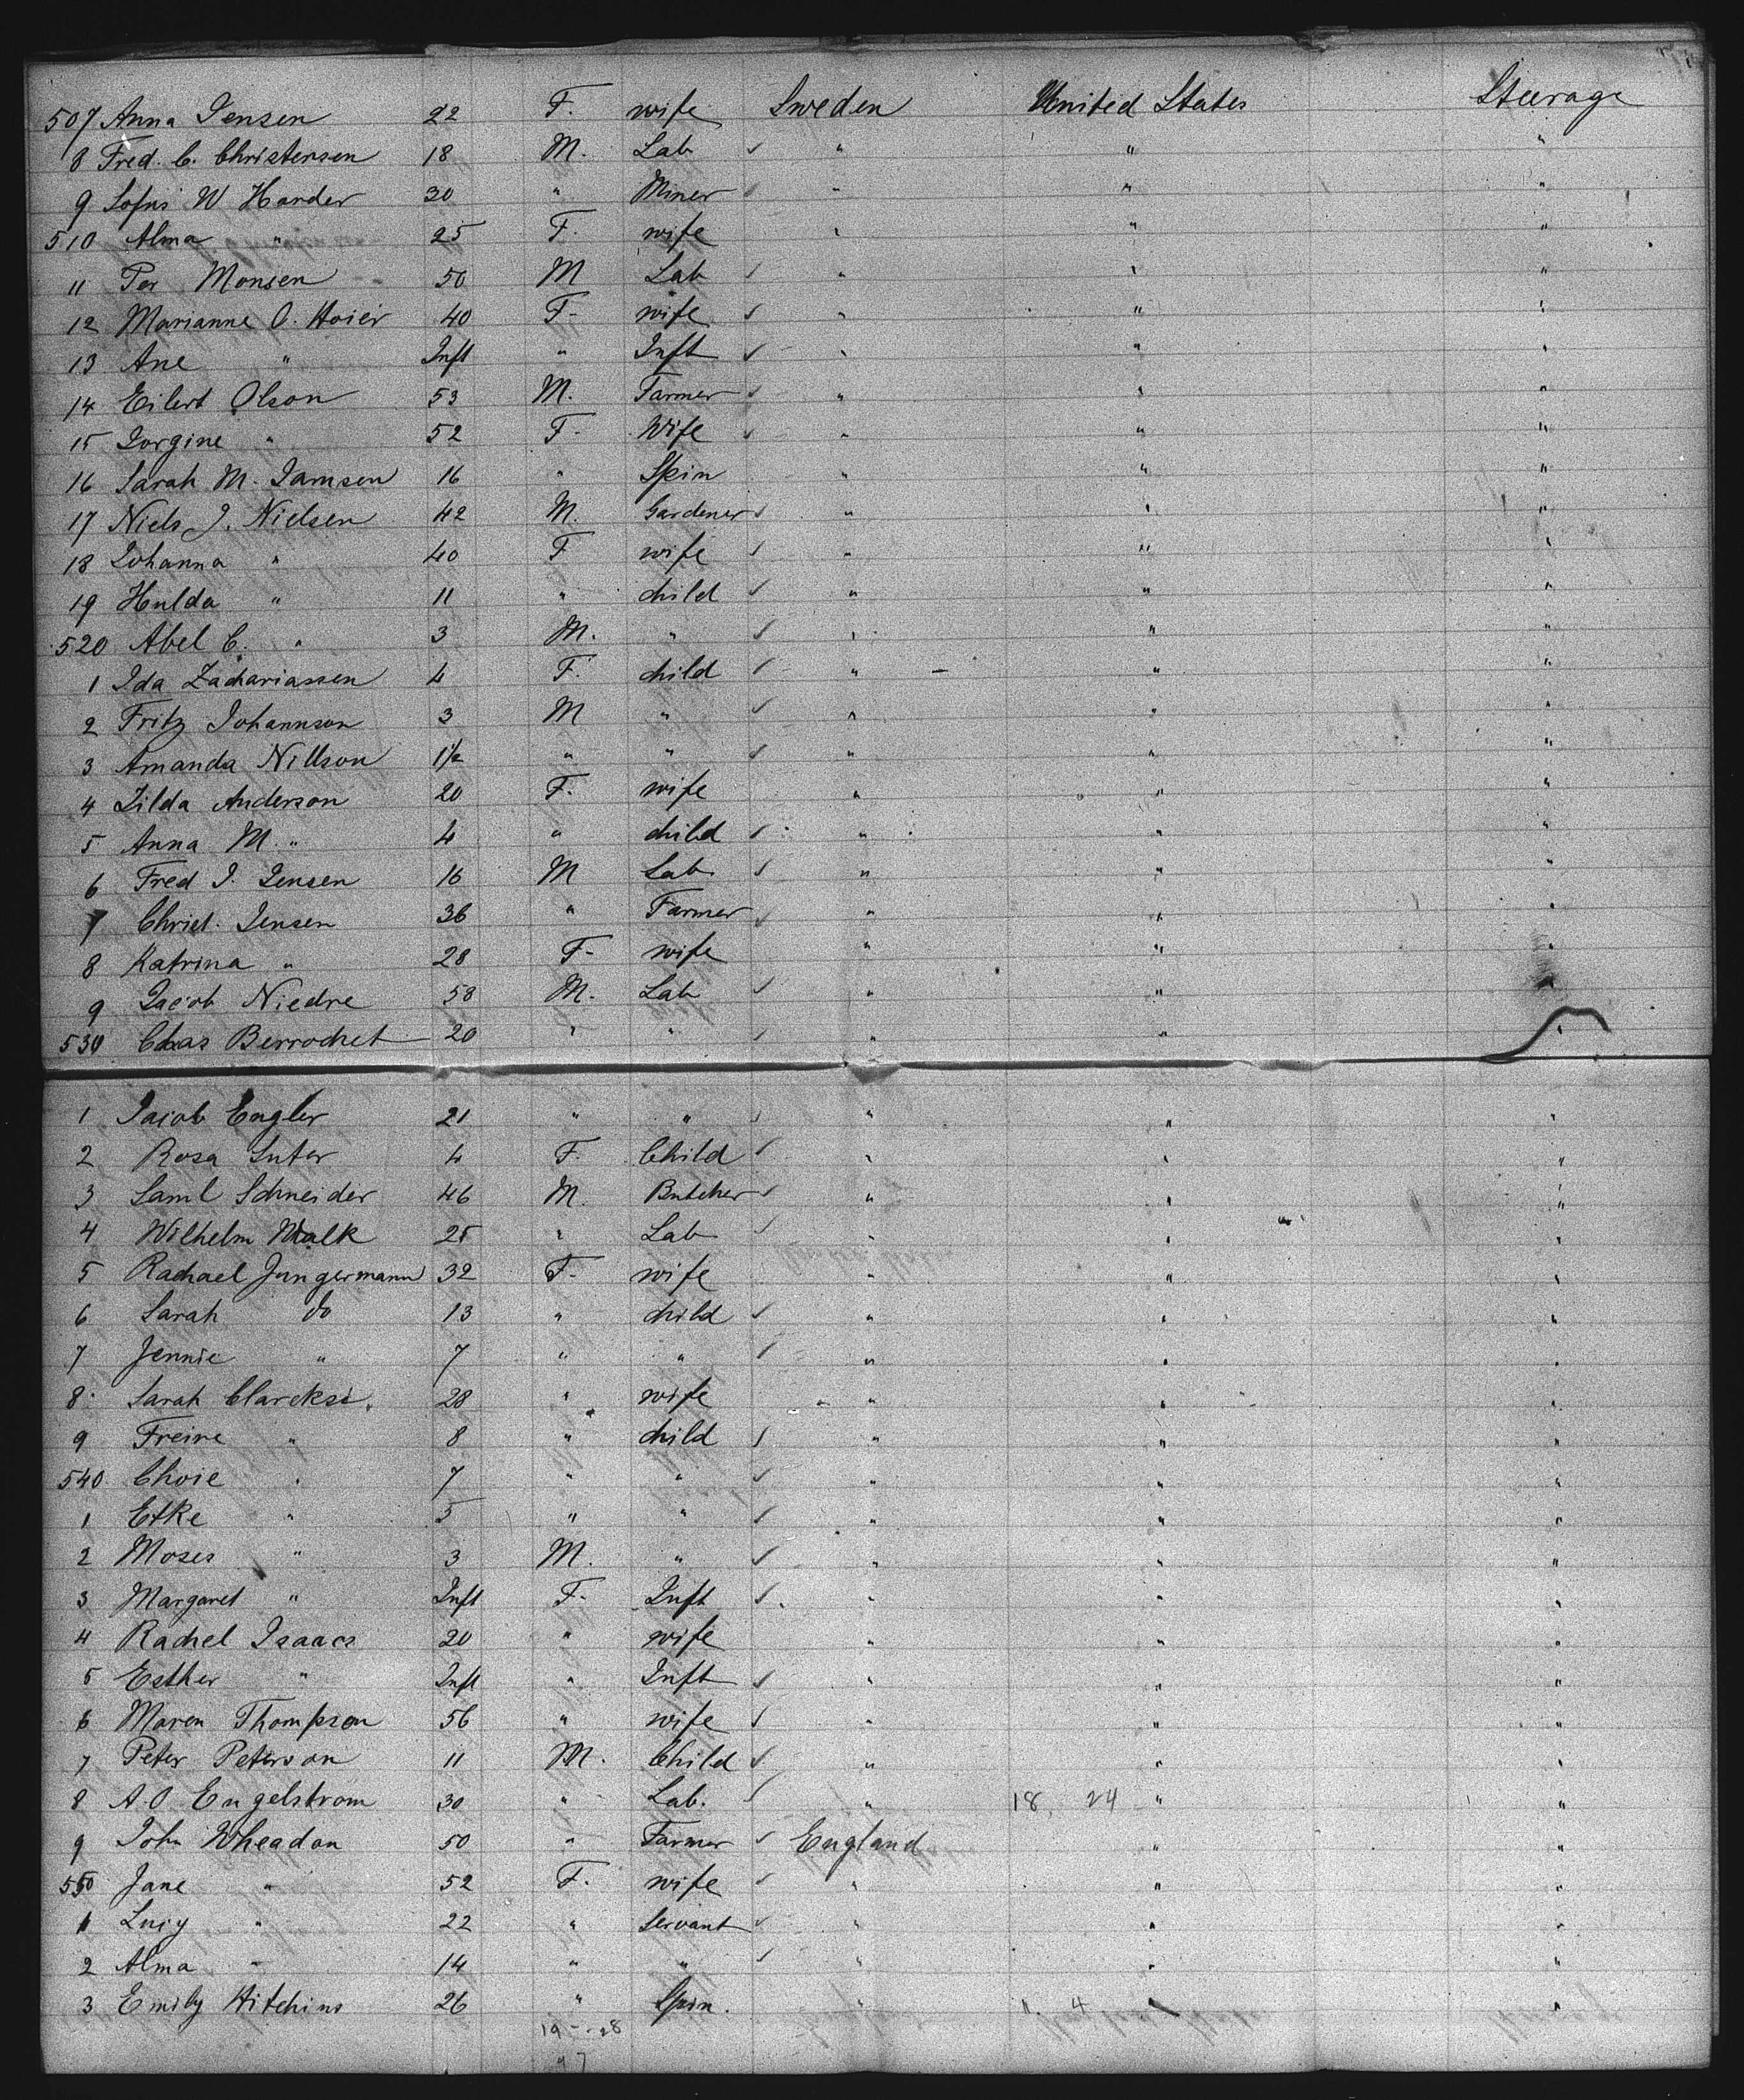 507 Anna Jensen 22 F. wife Sweden United States Steerage
8 Fred. C. Christensen 18 M. Lab ✓ " " "
9 Sofus W Harder 30 " Miner ✓ " " "
510 Alma " 25 F. wife " " "
11 Per Monsen 50 M Lab ✓ " " "
12 Marianne O. Hoier 40 F- wife ✓ " " "
13 Ane " Inft " Inft ✓ " " "
14 Eilert Olson 53 M. Farmer ✓ " " "
15 Jorgine " 52 F- Wife ✓ " " "
16 Sarah M. Jamsen 16 " Spin " " "
17 Niels J. Nielsen 42 M. Gardener ✓ " " "
18 Johanna " 40 F wife ✓ " " "
19 Hulda " 11 " child ✓ " " "
520 Abel C. " 3 M. " ✓ " " "
1 Ida Zachariassen 4 F. child ✓ " " "
2 Fritz Johannson 3 M " ✓ " " "
3 Amanda Nillson 1½ " " ✓ " " "
4 Zilda Anderson 20 F. wife " " "
5 Anna M. " 4 " child ✓ " " "
6 Fred J. Jensen 16 M Lab ✓ " " "
7 Christ. Jensen 36 " Farmer ✓ " " "
8 Katrina " 28 F- wife " " "
9 Jacob Niedre 58 M. Lab ✓ " " "
530 Chas Berrochet 20 " " ✓ " " "
1 Jacob Engler 21 " " ✓ " " "
2 Rosa Suter 4 F. Child ✓ " " "
3 Saml Schneider 46 M. Butcher ✓ " " "
4 Wilhelm Walk 25 " Lab ✓ " " "
5 Rachael Jungermann 32 F- wife " " "
6 Sarah do 13 " child ✓ " " "
7 Jennie " 7 " " ✓ " " "
8 Sarah Clarcksi. 28 " wife " " "
9 Freire " 8 " child ✓ " " "
540 Choie " 7 " " ✓ " " "
1 Etke " 5 " " ✓ " " "
2 Moses " 3 M. " ✓ " " "
3 Margaret " Inft F- Inft ✓ " " "
4 Rachel Isaacs 20 " wife " " "
5 Esther " Inft " Inft ✓ " " "
6 Maren Thompson 56 " wife ✓ " " "
7 Peter Peterson 11 M. Child ✓ " " "
8 A. O Engelstrom 30 " Lab. ✓ " 18 24 " "
9 John Wheadon 50 " Farmer ✓ England " "
550 Jane " 52 F. wife ✓ " " "
1 Lucy " 22 " Servant ✓ " " "
2 Alma " 14 " " ✓ " " "
3 Emily Hitchins 26 " Spin. " 4 " "
19 - 28